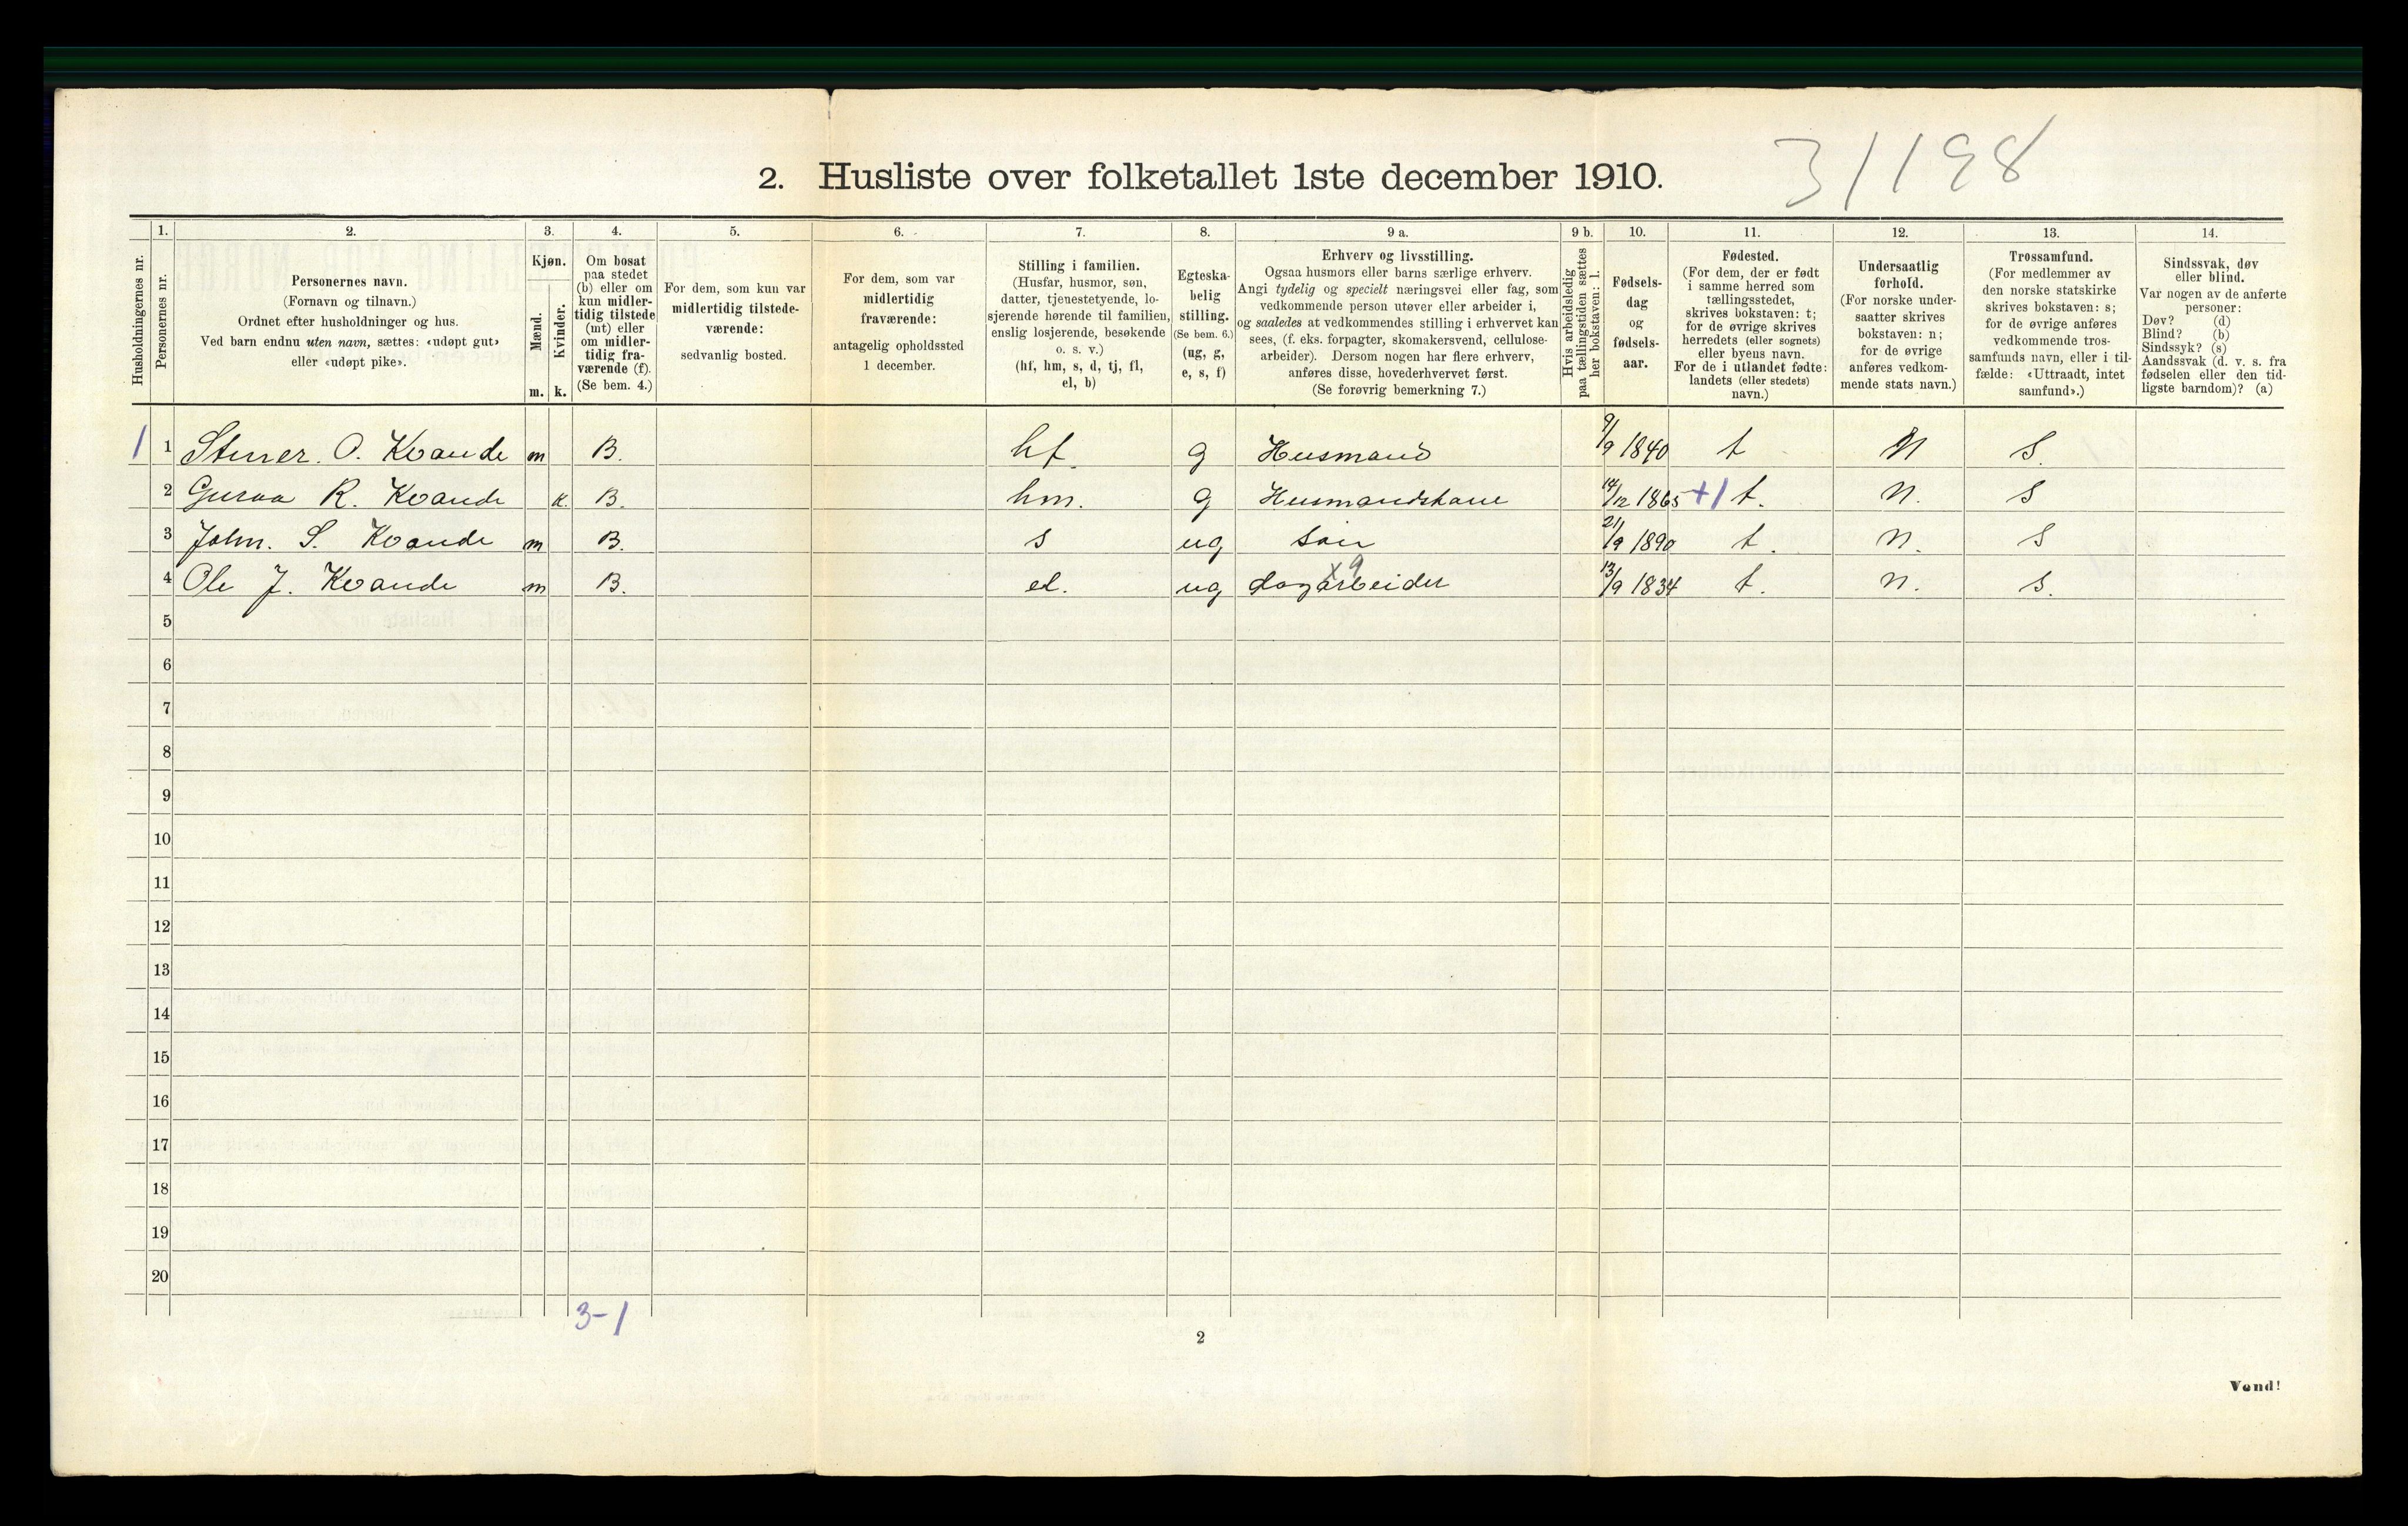 31198
2. Husliste over folketallet 1ste december 1910.
Husholdningernes nr.
1.
Personernes nr.
2.
Personernes navn.
(Fornavn og tilnavn.)
Ordnet efter husholdninger og hus.
Ved barn endnu uten navn, sættes: «udøpt gut»
eller «udøpt pike».
3.
Kjøn.
Mænd.
Kvinder.
m. k.
4.
Om bosat
paa stedet
(b) eller om
kun midler-
tidig tilstede
(mt) eller
om midler-
tidig fra-
værende (f).
(Se bem. 4.)
5.
For dem, som kun var
midlertidig tilstede-
værende:
sedvanlig bosted.
6.
For dem, som var
midlertidig
fraværende:
antagelig opholdssted
1 december.
7.
Stilling i familien.
(Husfar, husmor, søn,
datter, tjenestetyende, lo-
sjerende hørende til familien,
enslig losjerende, besøkende
o. s. v.)
(hf, hm, s, d, tj, fl,
el, b)
8.
Egteska-
belig
stilling.
(Se bem. 6.)
(ug, g,
e, s, f)
9 a.
Erhverv og livsstilling.
Ogsaa husmors eller barns særlige erhverv.
Angi tydelig og specielt næringsvei eller fag, som
vedkommende person utøver eller arbeider i,
og saaledes at vedkommendes stilling i erhvervet kan
sees, (f. eks. forpagter, skomakersvend, cellulose-
arbeider). Dersom nogen har flere erhverv,
anføres disse, hovederhvervet først.
(Se forøvrig bemerkning 7.)
9 b.
Hvis arbeidsledig
paa tællingstiden sættes
her bokstaven: l.
10.
Fødsels-
dag
og
fødsels-
aar.
11.
Fødested.
(For dem, der er født
i samme herred som
tællingsstedet,
skrives bokstaven: t;
for de øvrige skrives
herredets (eller sognets)
eller byens navn.
For de i utlandet fødte:
landets (eller stedets)
navn.)
12.
Undersaatlig
forhold.
(For norske under-
saatter skrives
bokstaven: n;
for de øvrige
anføres vedkom-
mende stats navn.)
13.
Trossamfund.
(For medlemmer av
den norske statskirke
skrives bokstaven: s;
for de øvrige anføres
vedkommende tros-
samfunds navn, eller i til-
fælde: «Uttraadt, intet
samfund».)
14.
Sindssvak, døv
eller blind.
Var nogen av de anførte
personer:
Døv? (d)
Blind? (b)
Sindssyk? (s)
Aandssvak (d. v. s. fra
fødselen eller den tid-
ligste barndom)? (a)
1 1 O. Kvande m B. hf. g Husmand 9/9 1840 t N S.
2 Guraa R. Kvande k. B. hm. g Husmandskone 14/12 1865 +1 t. N. S
3 John. S. Kvande m B. s ug Søn 21/9 1890 t. N. S
4 Ole J. Kvande m B. el. ug dagarbeider x9 13/9 1834 t. N. S.
5
6
7
8
9
10
11
12
13
14
15
16
17
18
19
20
3-1
2
Vend!